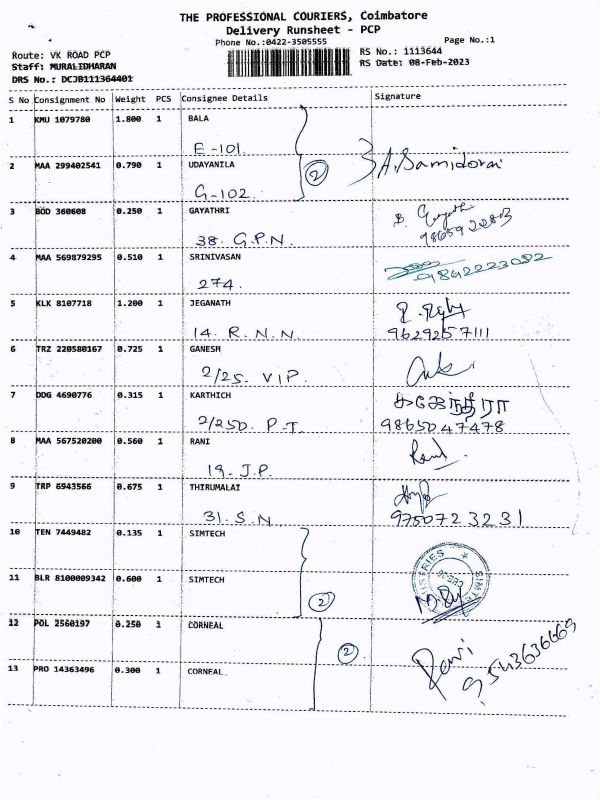 THE PROFESSIONAL COURIERS, Coimbatore
Delivery Runsheet - PCP
Phone No.:0422-3505555 Page No.:1
Route: VK ROAD PCP RS No.: 1113644
Staff: MURALIDHARAN RS Date: 08-Feb-2023
DRS No.: DCJB111364401
S No Consignment No Weight PCS Consignee Details Signature
1 KMU 1079780 1.800 1 BALA
E-101
2 MAA 299402541 0.790 1 UDAYANILA 2 A. Samidorai
G-102
3 BOD 360608 0.250 1 GAYATHRI
38. G.P.N.
4 MAA 569879295 0.510 1 SRINIVASAN 9842223082
274.
5 KLK 8107718 1.200 1 JEGANATH
14. R.N.N. 9629257111
6 TRZ 220580167 0.725 1 GANESH
2/25. VIP.
7 DDG 4690776 0.315 1 KARTHICH
2/25D. P.T. 9865047478
8 MAA 567520200 0.560 1 RANI Rani
19. J.P.
9 TRP 6943566 0.675 1 THIRUMALAI
31. S.N. 9750723231
10 TEN 7449482 0.135 1 SIMTECH
11 BLR 8100009342 0.600 1 SIMTECH
2
12 POL 2560197 0.250 1 CORNEAL
2 9543636669
13 PRO 14363496 0.300 1 CORNEAL